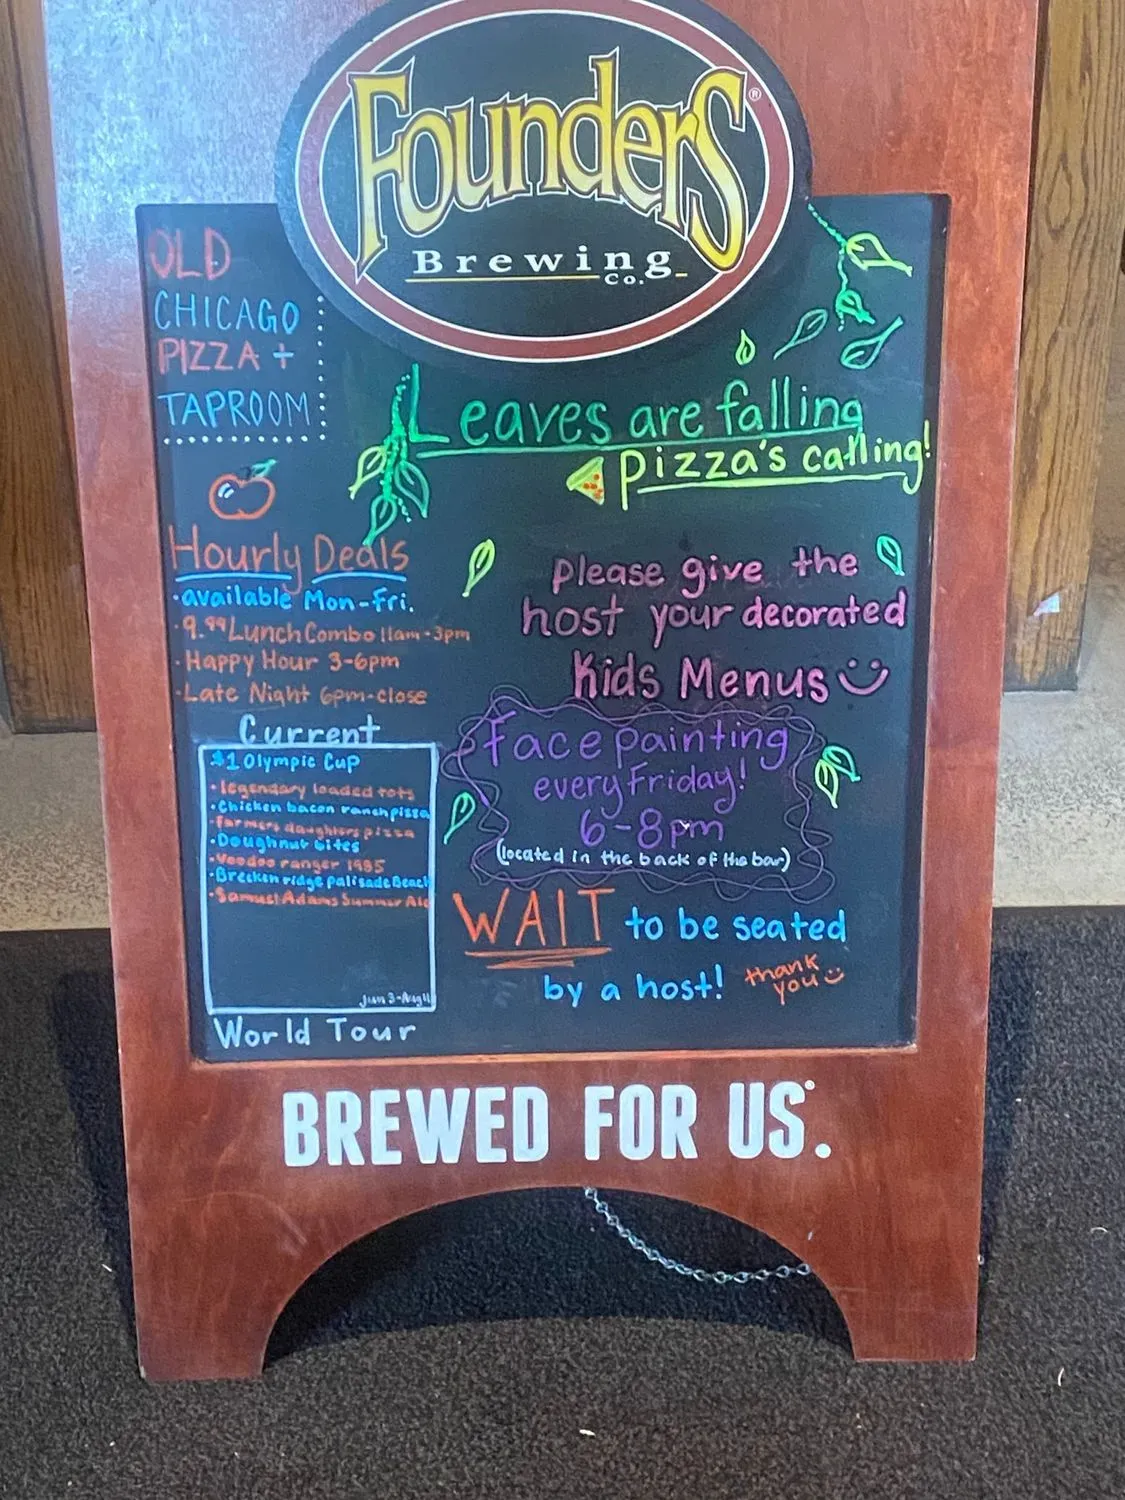 Founders®
Brewing
Co.
OLD
CHICAGO
PIZZA +
TAPROOM
Leaves are falling
pizza's calling!
Hourly Deals
·available Mon-Fri.
·9.99 Lunch Combo 11am-3pm
·Happy Hour 3-6pm
·Late Night 6pm-close
Current
$1 Olympic Cup
·legendary loaded tots
·Chicken bacon ranch pizza
·Farmers daughters pizza
·Doughnut bites
·Voodoo ranger 1985
·Brecken ridge palisade Beach
·Samuel Adams Summer Ale
World Tour
please give the
host your decorated
Kids Menus
Face painting
every Friday!
6-8pm
(located in the back of the bar)
WAIT to be seated
by a host! thank
you
BREWED FOR US.